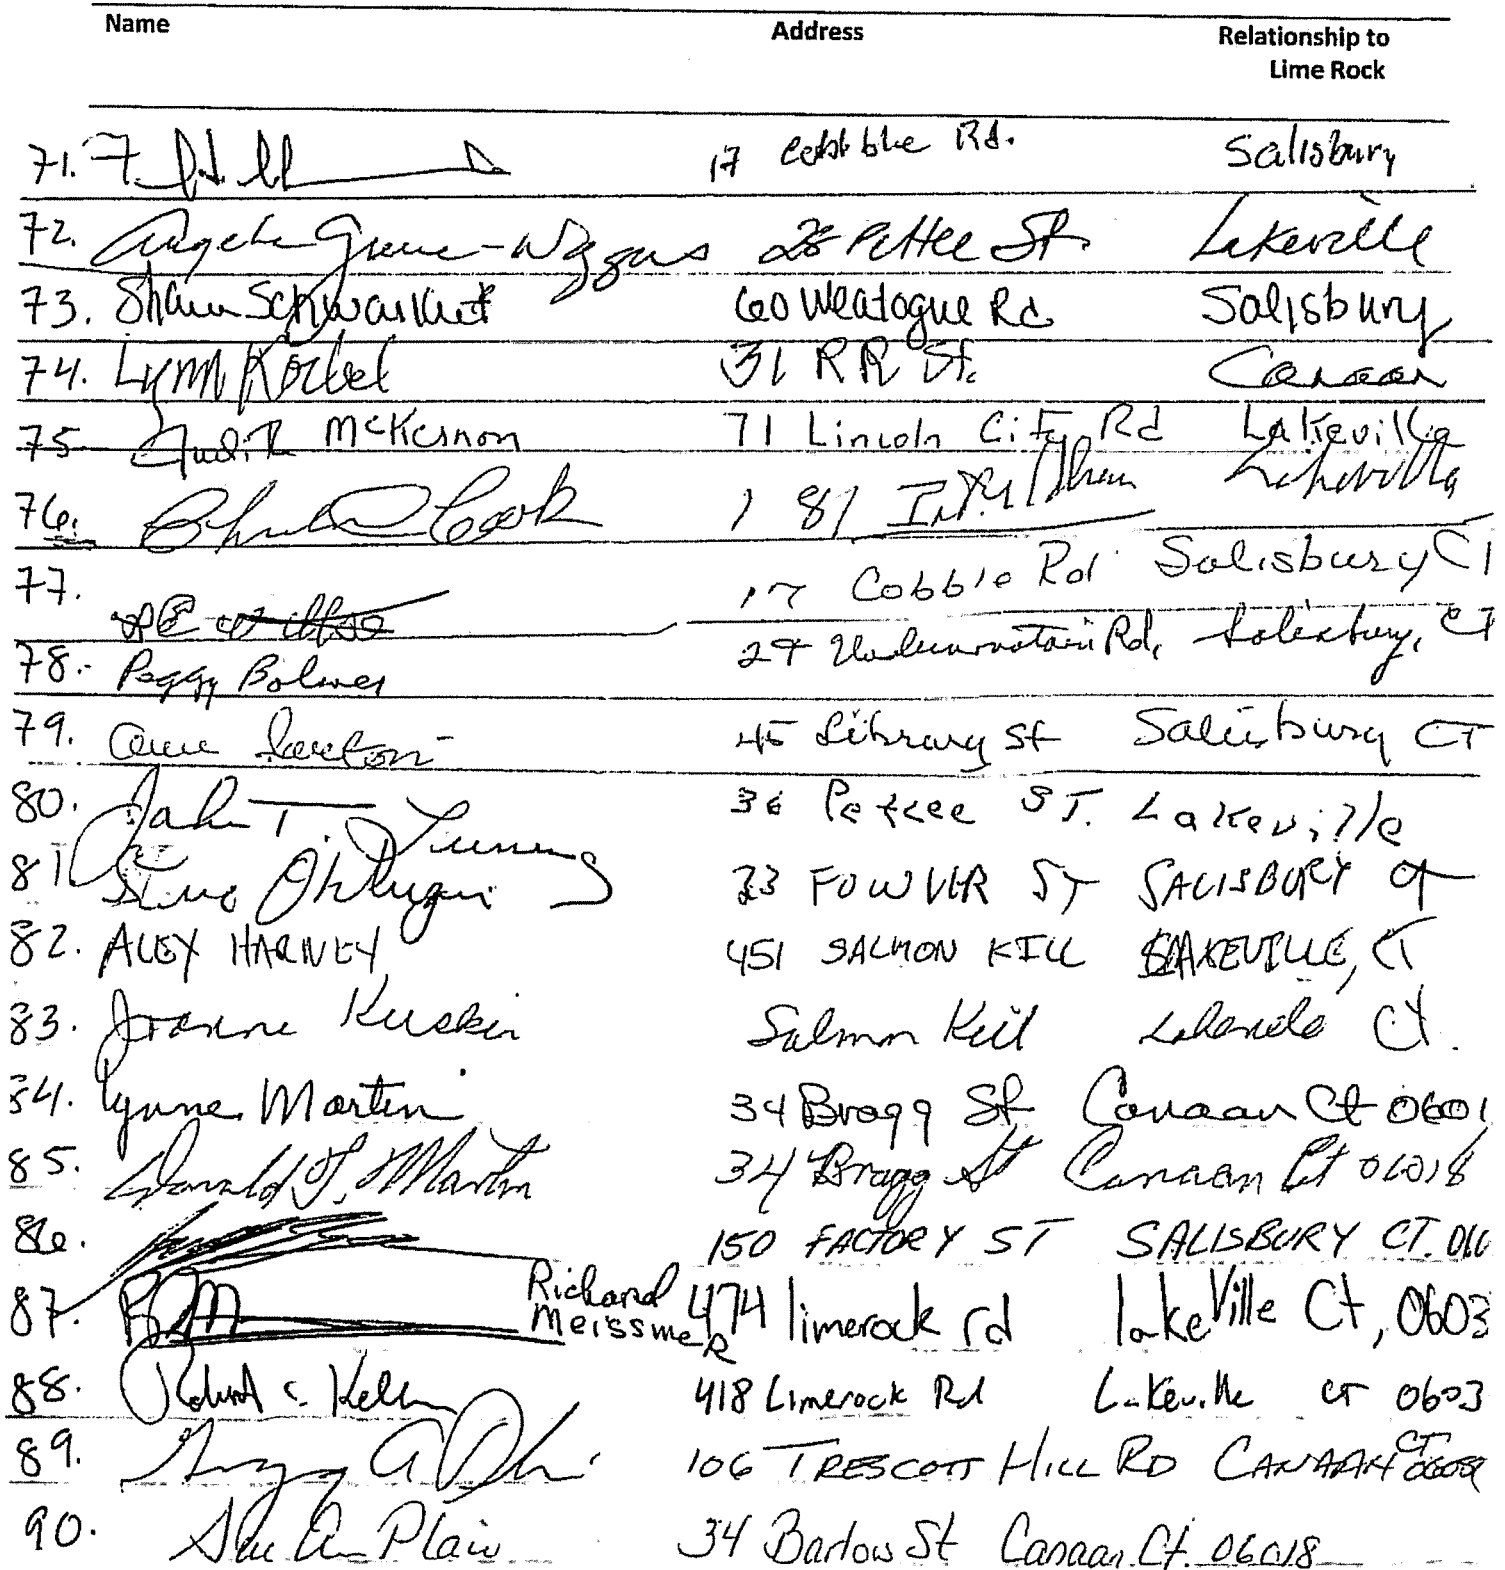 Name Address Relationship to
Lime Rock
71. 17 Rd. Salisbury
72. Angela Greene-Wiggins 28 Pettee St. Lakeville
73. 60 Weatogue Rd Salisbury
74. Lynn 31 RR St. Canaan
75 Judith McKernon 71 Lincoln City Rd Lakeville
76. Cook 181 Lakeville
77. 17 Cobble Rd Salisbury CT
78. Peggy 27 Undermountain Rd, Salisbury, CT
79. Anne 45 Library St Salisbury CT
80. John T. 36 Pettee ST. Lakeville
81 33 FOWLER ST SALISBURY CT
82. ALEX HARNEY 451 SALMON KILL LAKEVILLE, CT
83. Joanne Salmon Kill Lakeville Ct.
84. Lynne Martin 34 Bragg St Canaan Ct 0601
85. Donald J. Martin 34 Bragg St Canaan Ct 06018
86. 150 FACTORY ST SALISBURY CT.
87. Richard 474 limerock rd lakeville Ct, 0603
MeissmeR
88. Robert C. 418 Limerock Rd Lakeville CT 0603
89. 106 TRESCOTT HILL RD CANAAN CT
90. Sue Plain 34 Barlow St Canaan Ct. 06018